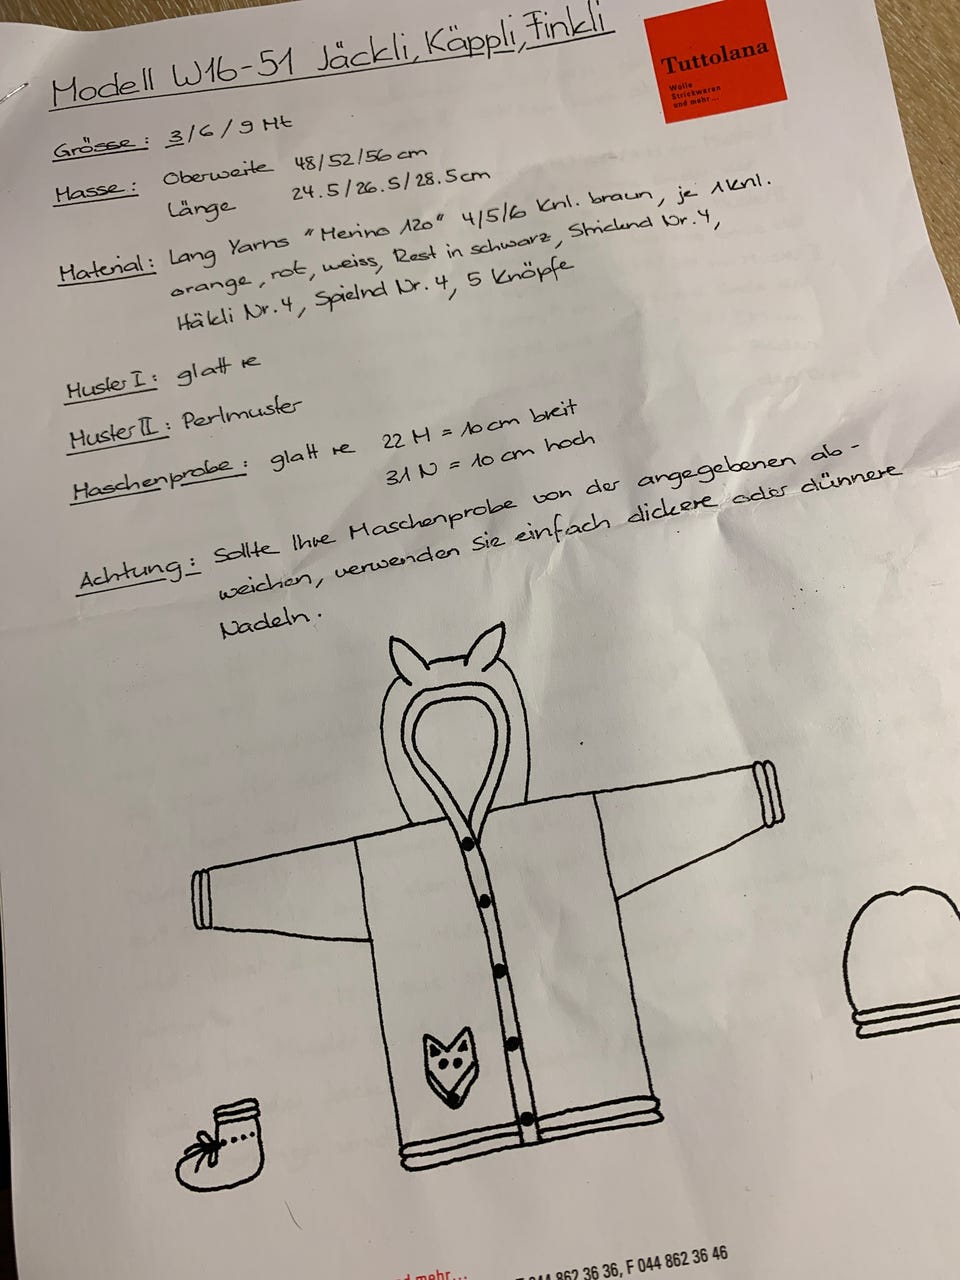 Modell W16-51 Jäckli, Käppli, Finkli
Tuttolana
Wolle
Strickwaren
und mehr...
Grösse: 3/6/9 Mt
Masse: Oberweite 48/52/56 cm
Länge 24.5/26.5/28.5 cm
Material: Lang Yarns "Merino 120" 4/5/6 Knl. braun, je 1 Knl.
orange, rot, weiss, Rest in schwarz, Stricknd Nr. 4,
Häkli Nr. 4, Spielnd Nr. 4, 5 Knöpfe
Muster I: glatt re
Muster II: Perlmuster
Maschenprobe: glatt re 22 M = 10 cm breit
31 N = 10 cm hoch
Achtung: Sollte Ihre Maschenprobe von der angegebenen ab-
weichen, verwenden Sie einfach dickere oder dünnere
Nadeln.
mehr...
044 862 36 36, F 044 862 36 46